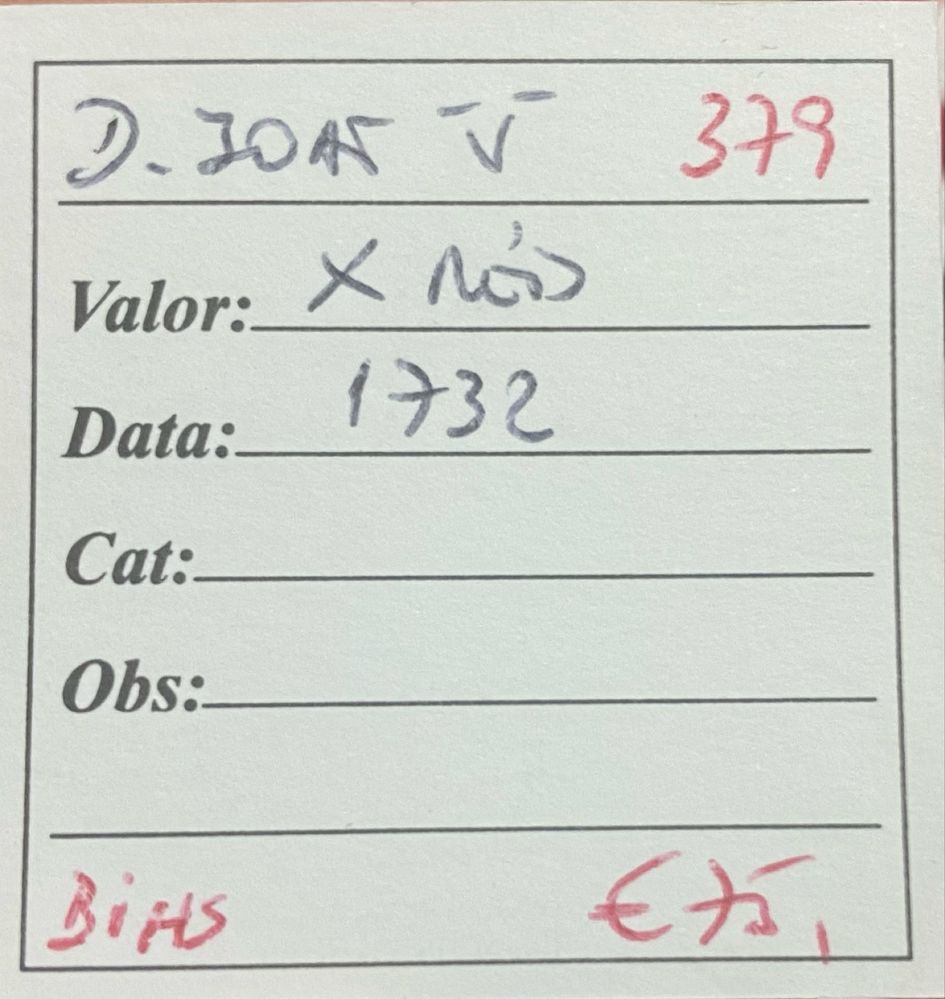 D. JOAO V 379
Valor: X Réis
Data: 1732
Cat:
Obs:
€ 75,